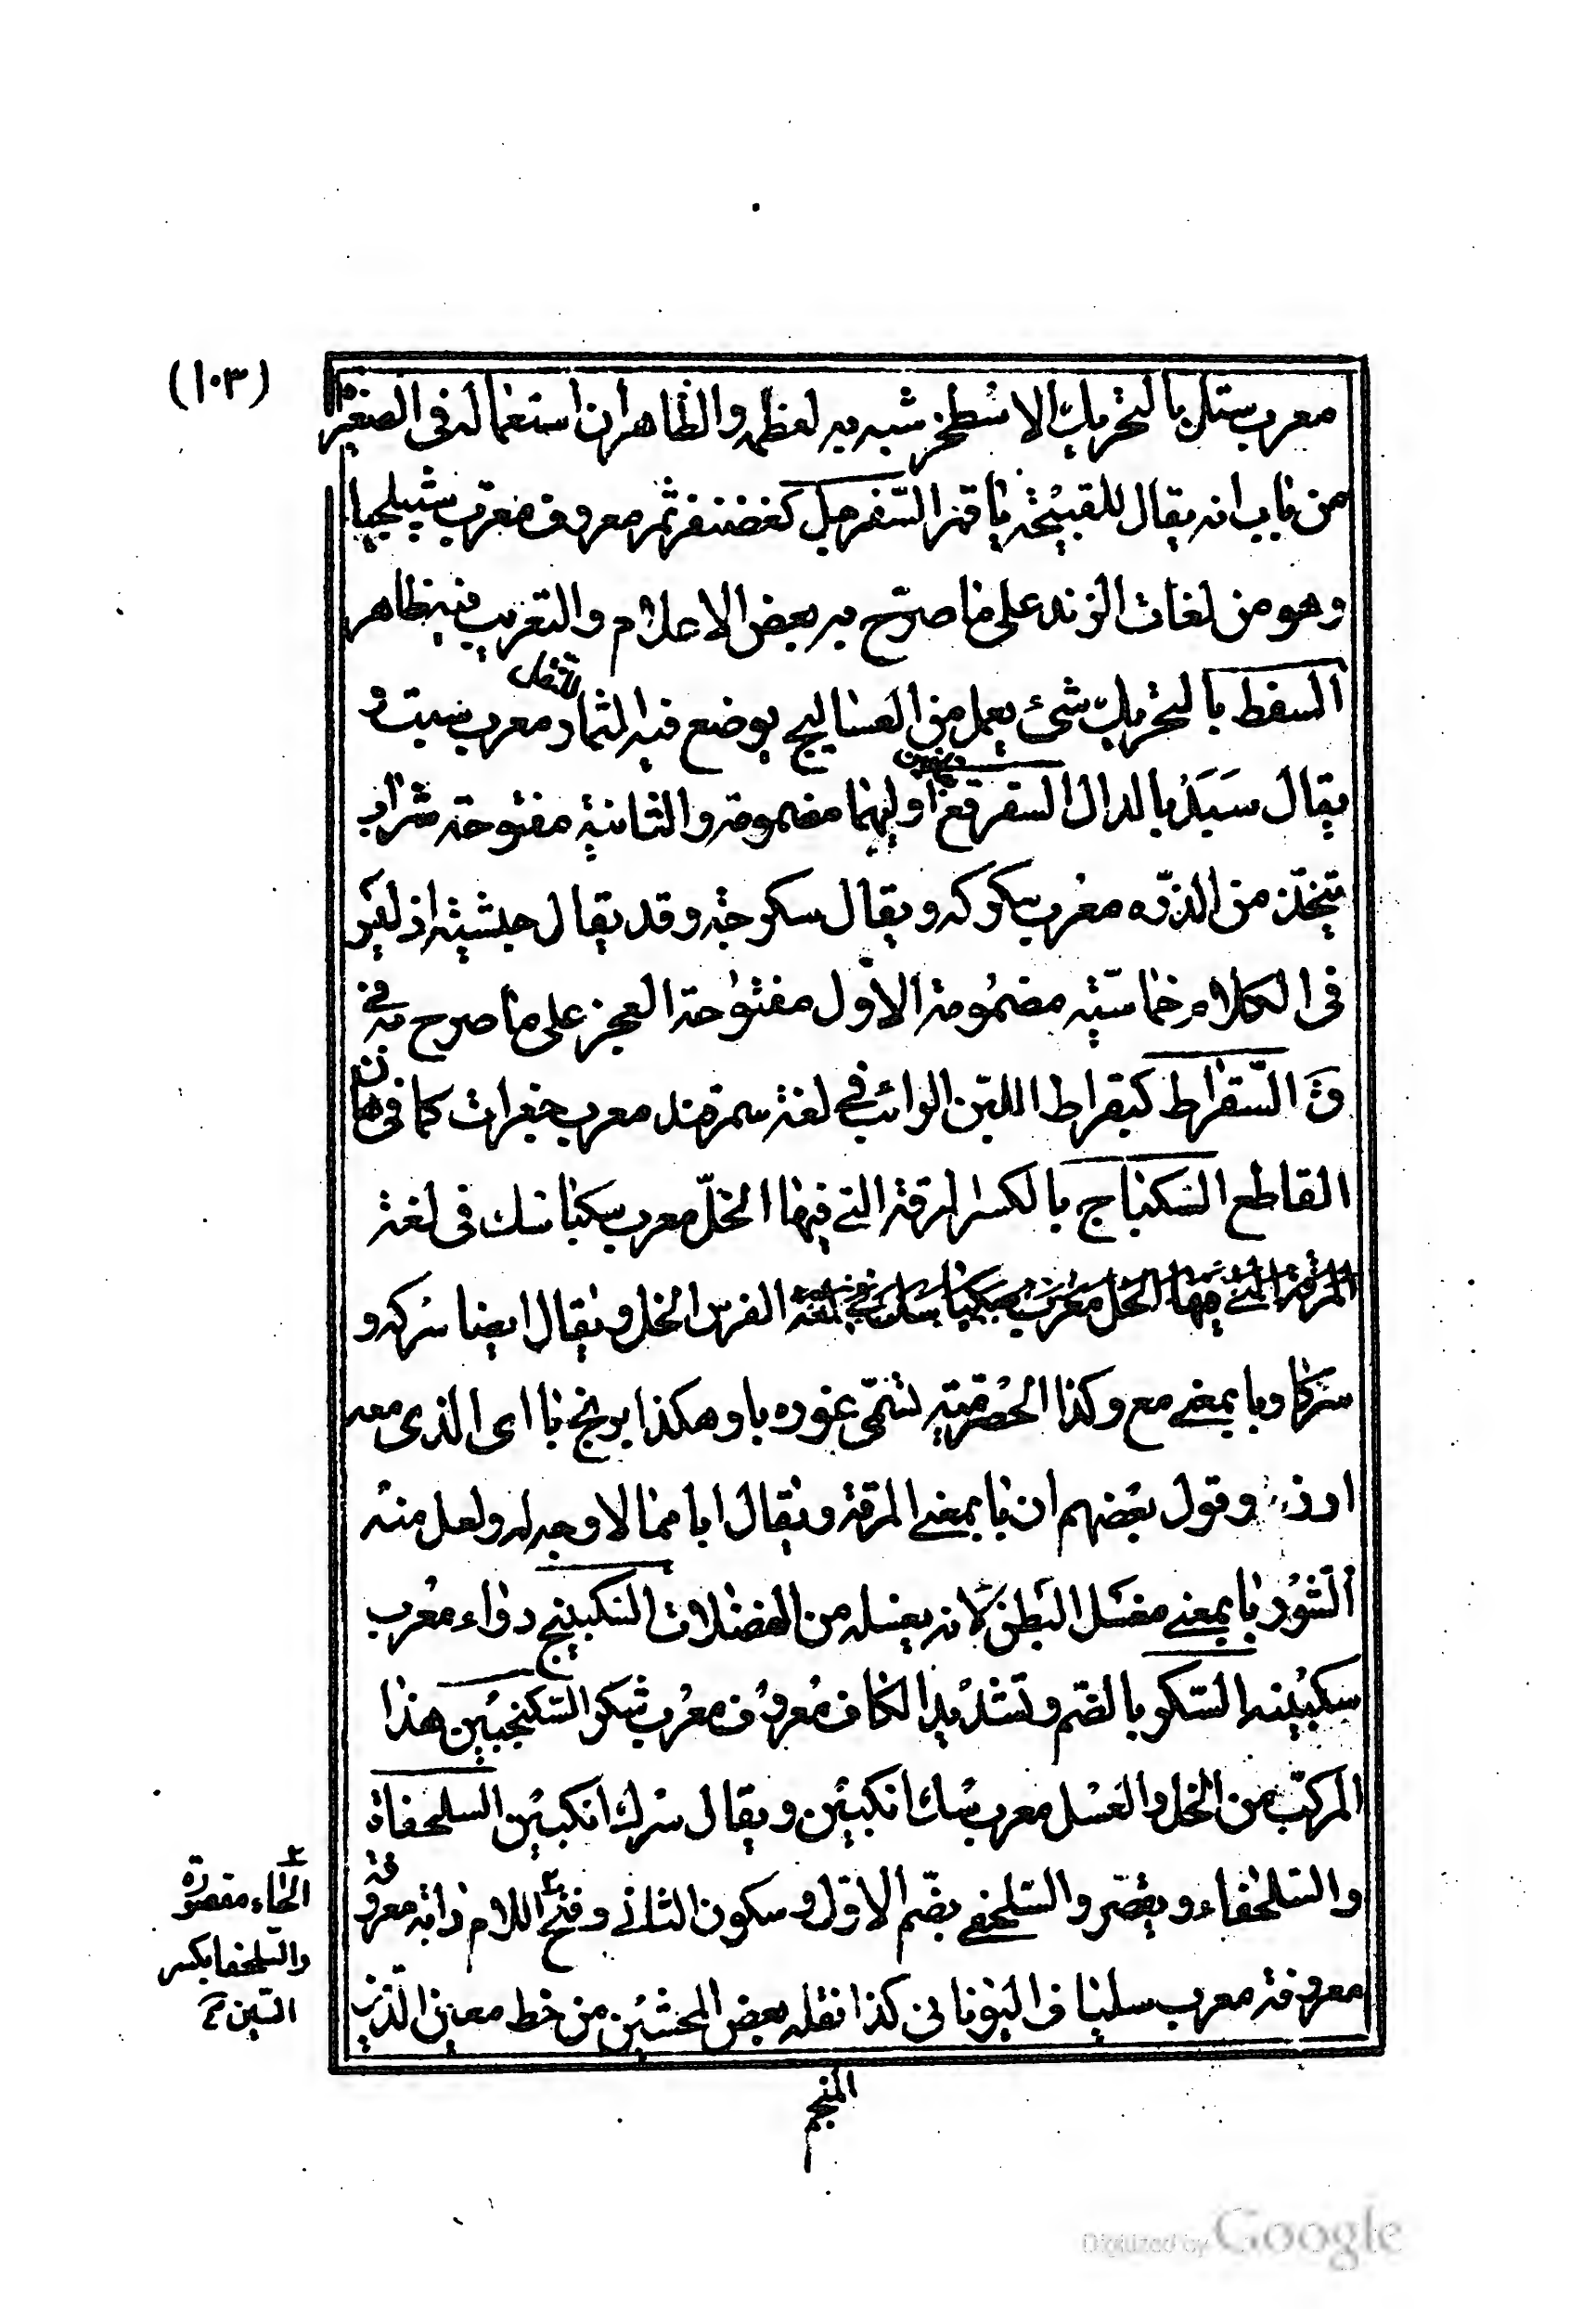 (١٠٣)
معرب ستل بالتحريك الاسطخر شبه به لعظمه والظاهر ان استعماله فى الصغير
من باب انه يقال للقبيحة يا قمر السفرجل كغضنفر ثمر معروف معرب
وهو من لغات الزند على ما صرّح به بعض الاعلام والتعريب فيه ظاهر
السفط بالتحريك شئ يعمل من العساليج يوضع فيه الثمار معرب سبت و
يقال سبد بالدال السقرقع اوليهما مضمومة والثانية مفتوحة شراب
يتخذ من الذرّه معرب سكركه ويقال سكرجه وقد يقال حبشية اذ ليس
فى الكلام خماسيّة مضمومة الاول مفتوحة العجز على ما صرح به فى
ق السقراط كبقراط اللبن الرائب فى لغة سمرقند معرب جغرات كما فى
القاطع السكباج بالكسر المرقة التى فيها الخلّ معرب سكبا سك فى لغة
المرقة التى فيها الخل معرب سكبا سك فى لغة الفرس الخل ويقال ايضا سركه و
سركا وبا بمعنى مع وكذا الحصرميّة تسمّى غوره با وهكذا برنج با اى الذى معه
ارز وقول بعضهم ان با بمعنى المرقة ويقال ابا مما لا وجه له ولعل منه
الشوربا بمعنى مغسل البطن لانه يغسله من الفضلات السكبينج دواء معرب
سكبينه السكر بالضم وتشديد الكاف معروف معرب شكر السكنجبين هذا
المركّب من الخل والعسل معرب سك انكبين ويقال سرك انكبين السلحفاة
والسلحفاء ويقصر والسلحفى بضم الاوّل وسكون الثانى وفتح اللام دابة معروفة
معروفة معرب فى اليونانى كذا نقله بعض المحشين من خط معين الدين
الحاء مقصورة
والسلحفا بكسر
السين
المنجم
Digitized by Google